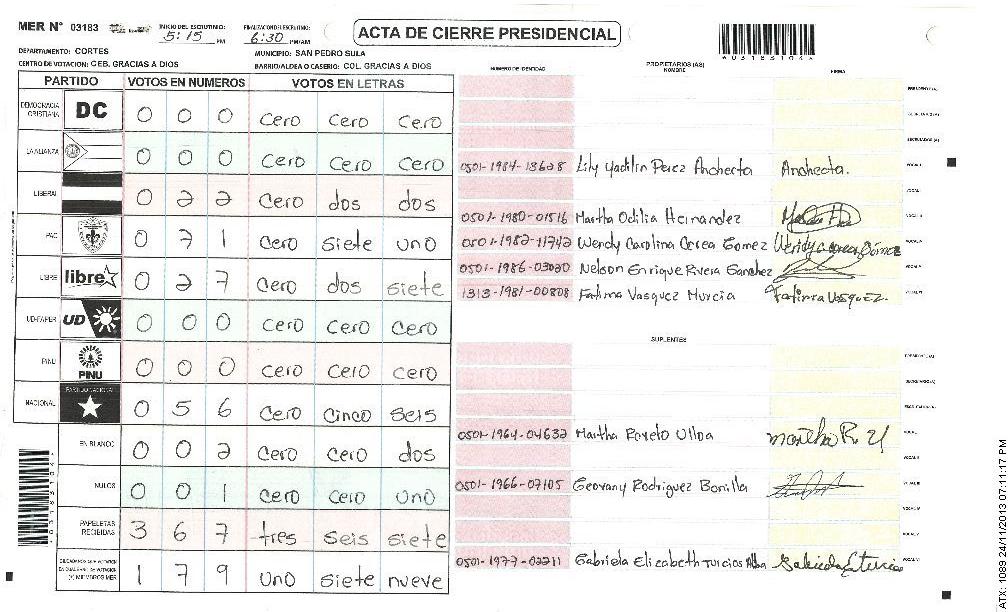 MER N° 03183 INICIO DEL ESCRUTINIO: 5:15 PM FINALIZACION DEL ESCRUTINIO: 6:30 PM/AM ACTA DE CIERRE PRESIDENCIAL
*03183104*
DEPARTAMENTO: CORTES MUNICIPIO: SAN PEDRO SULA
CENTRO DE VOTACION: CEB. GRACIAS A DIOS BARRIO/ALDEA O CASERIO: COL. GRACIAS A DIOS
NUMERO DE IDENTIDAD PROPIETARIOS (AS) NOMBRE FIRMA
PARTIDO VOTOS EN NUMEROS VOTOS EN LETRAS
DEMOCRACIA CRISTIANA DC 0 0 0 cero cero cero
LA ALIANZA 0 0 0 cero cero cero
LIBERAL 0 2 2 cero dos dos
PAC 0 7 1 cero siete uno
LIBRE libre 0 2 7 cero dos siete
UD-FAPER UD 0 0 0 cero cero cero
PINU PINU 0 0 0 cero cero cero
NACIONAL PARTIDO NACIONAL 0 5 6 cero cinco seis
EN BLANCO 0 0 2 cero cero dos
NULOS 0 0 1 cero cero uno
PAPELETAS RECIBIDAS 3 6 7 tres seis siete
CIUDADANOS QUE VOTARON EN CUADERNO DE VOTACION (+) MIEMBROS MER 1 7 9 uno siete nueve
PRESIDENTE(A)
SECRETARIO(A)
ESCRUTADOR(A)
0501-1984-13628 Lily Yadilin Perez Anchecta Anchecta. VOCAL I
0501-1980-01516 Martha Odilia Hernandez
0501-1982-11742 Wendy Carolina Corea Gomez
0501-1986-03020 Nelson Enrique Rivera Sanchez
1313-1981-00808 Fatima Vasquez Murcia Fatima Vasquez.
SUPLENTES
PRESIDENTE(A)
SECRETARIO(A)
ESCRUTADOR(A)
0501-1964-04632 Martha Ulloa Martha R. U
0501-1966-07105 Geovany Rodriguez Bonilla
0501-1977-02211 Gabriela Elizabeth Turcios Alba
*03183104*
ATX: 1089 24/11/2013 07:11:17 PM